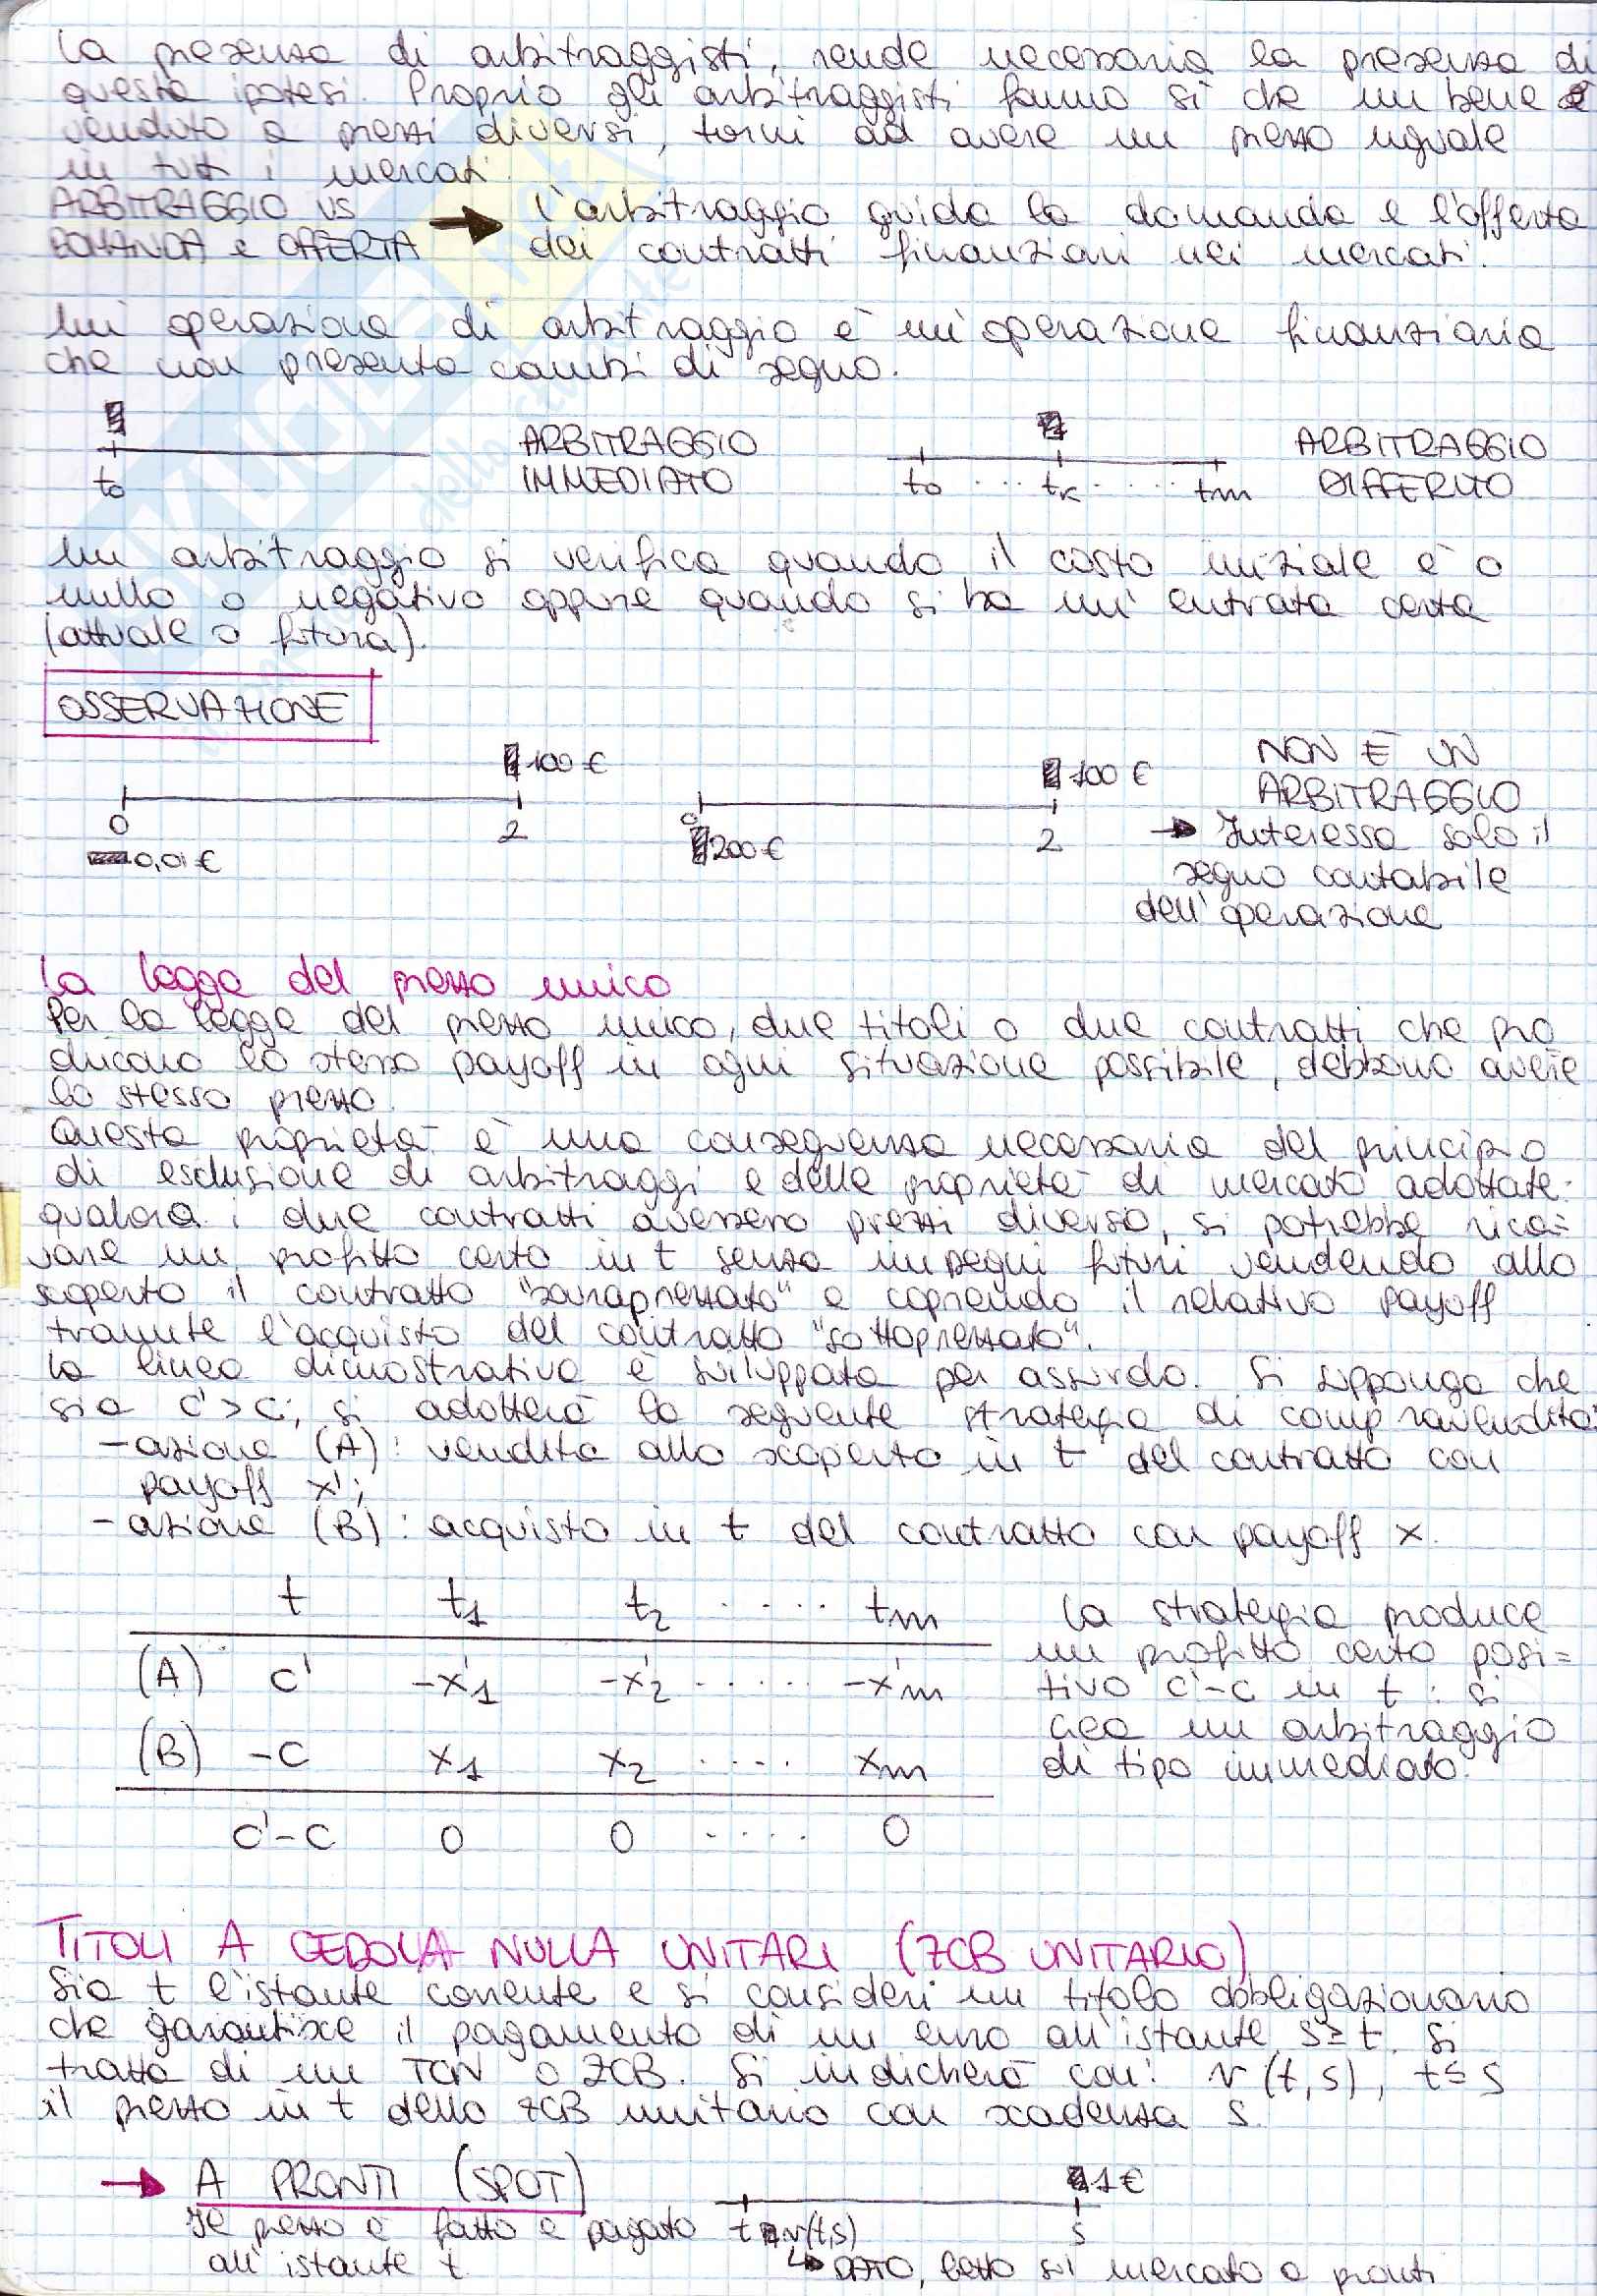 La presenza di arbitraggisti, rende necessaria la presenza di
questa ipotesi. Proprio gli arbitraggisti fanno sì che un bene
venduto a prezzi diversi, torni ad avere un prezzo uguale
in tutti i mercati.
ARBITRAGGIO VS
DOMANDA e OFFERTA
L'arbitraggio guida la domanda e l'offerta
dei contratti finanziari nei mercati.
Un'operazione di arbitraggio è un'operazione finanziaria
che non presenta cambi di segno.
ARBITRAGGIO
IMMEDIATO
t0
t0 ... tk ..... tm
ARBITRAGGIO
DIFFERITO
Un arbitraggio si verifica quando il costo iniziale è o
nullo o negativo oppure quando si ha un'entrata certa
(attuale o futura).
OSSERVAZIONE
100 €
0 2
0,01 €
100 €
0 2
200 €
NON È UN
ARBITRAGGIO
→ Interessa solo il
segno contabile
dell'operazione
La legge del prezzo unico
Per la legge del prezzo unico, due titoli o due contratti che pro
ducano lo stesso payoff in ogni situazione possibile, debbono avere
lo stesso prezzo.
Questa proprietà è una conseguenza necessaria del principio
di esclusione di arbitraggi e delle proprietà di mercato adottate:
qualora i due contratti avessero prezzi diverso, si potrebbe rica=
vare un profitto certo in t senza impegni futuri vendendo allo
scoperto il contratto "sovraprezzato" e coprendo il relativo payoff
tramite l'acquisto del contratto "sottoprezzato".
La linea dimostrativa è sviluppata per assurdo. Si supponga che
sia c'>c; si adotterà la seguente strategia di compravendita:
- azione (A): vendita allo scoperto in t del contratto con
payoff x';
- azione (B): acquisto in t del contratto con payoff x.
t t1 t2 ..... tm
(A) c' -x'1 -x'2 ..... -x'm
(B) -c x1 x2 ..... xm
c'-c 0 0 ..... 0
La strategia produce
un profitto certo posi=
tivo c'-c in t: si
crea un arbitraggio
di tipo immediato.
TITOLI A CEDOLA NULLA UNITARI (ZCB UNITARIO)
Sia t l'istante corrente e si consideri un titolo obbligazionario
che garantisce il pagamento di un euro all'istante s≥t. Si
tratta di un TCN o ZCB. Si indicherà con: v(t,s), t≤s
il prezzo in t dello ZCB unitario con scadenza s.
→ A PRONTI (SPOT)
Il prezzo è fatto e pagato
all'istante t
1€
t v(t,s) s
↳ DATO, letto sul mercato a pronti